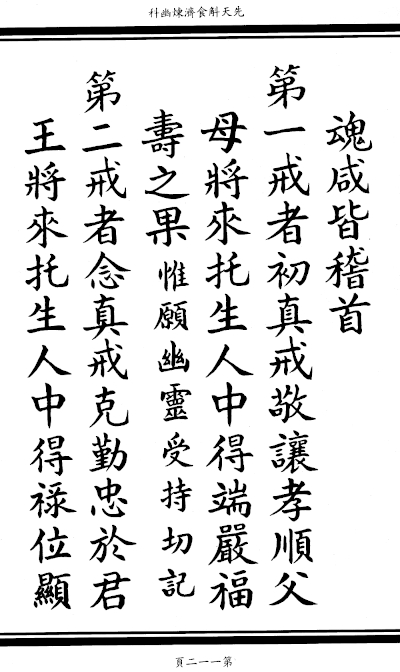 先天斛食濟煉幽科
魂咸皆稽首
第一戒者初真戒敬讓孝順父
母將來托生人中得端嚴福
壽之果惟願幽靈受持切記
第二戒者念真戒克勤忠於君
王將來托生人中得祿位顯
第一一二頁